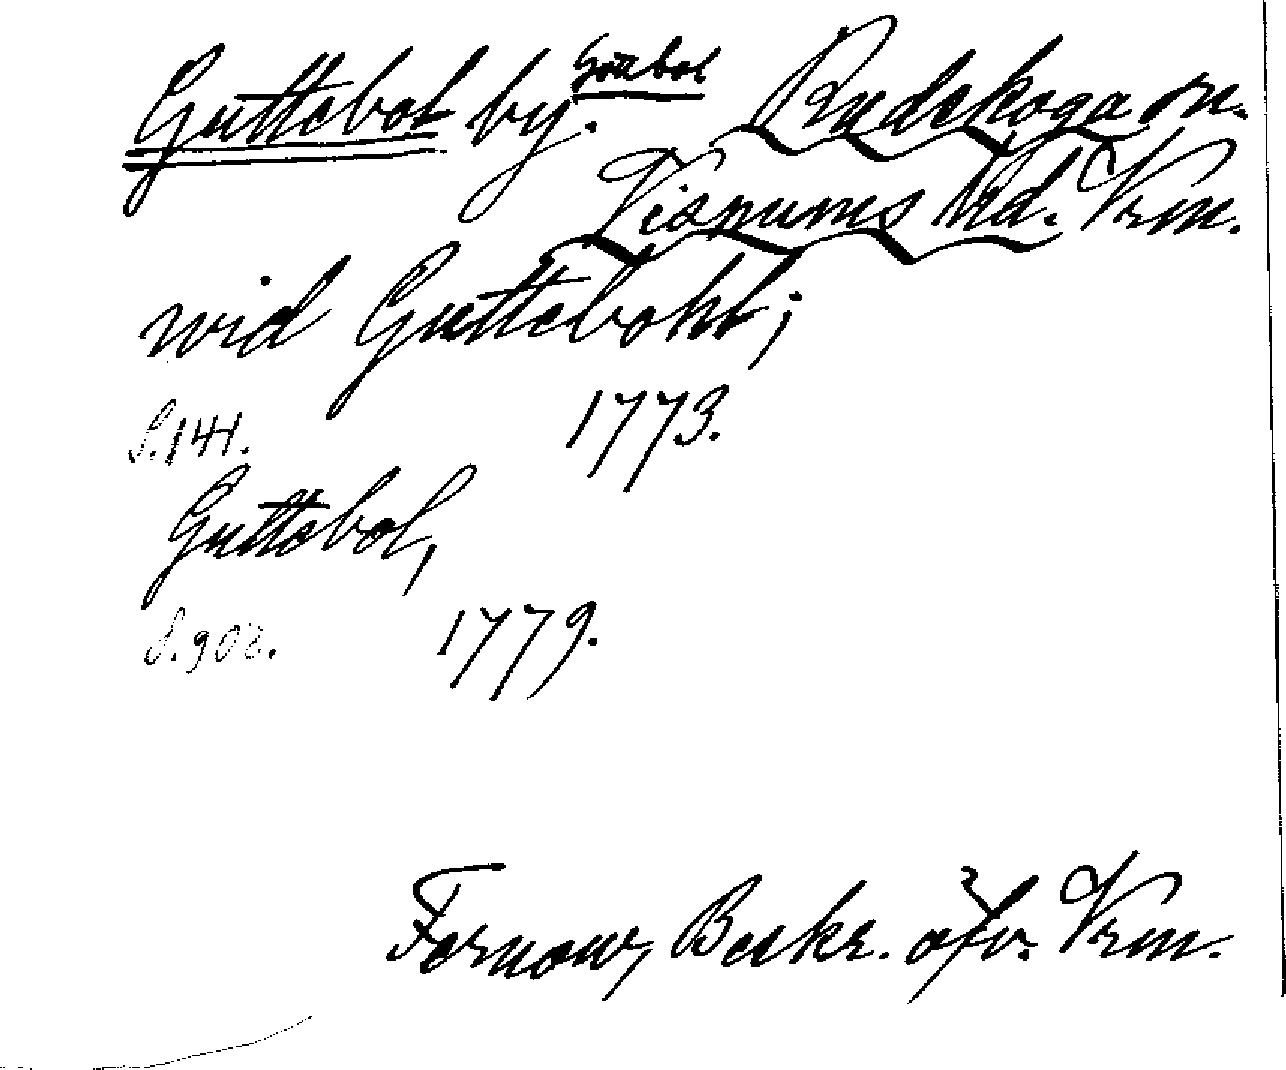 Guttebol by. Göttbol Rudskoga sn.
Visnums hd. Vrm.
wid Guttebohl;
S. 141. 1773.
Guttebol,
S. 902. 1779.
Fernow, Beskr. öfv. Vrm.